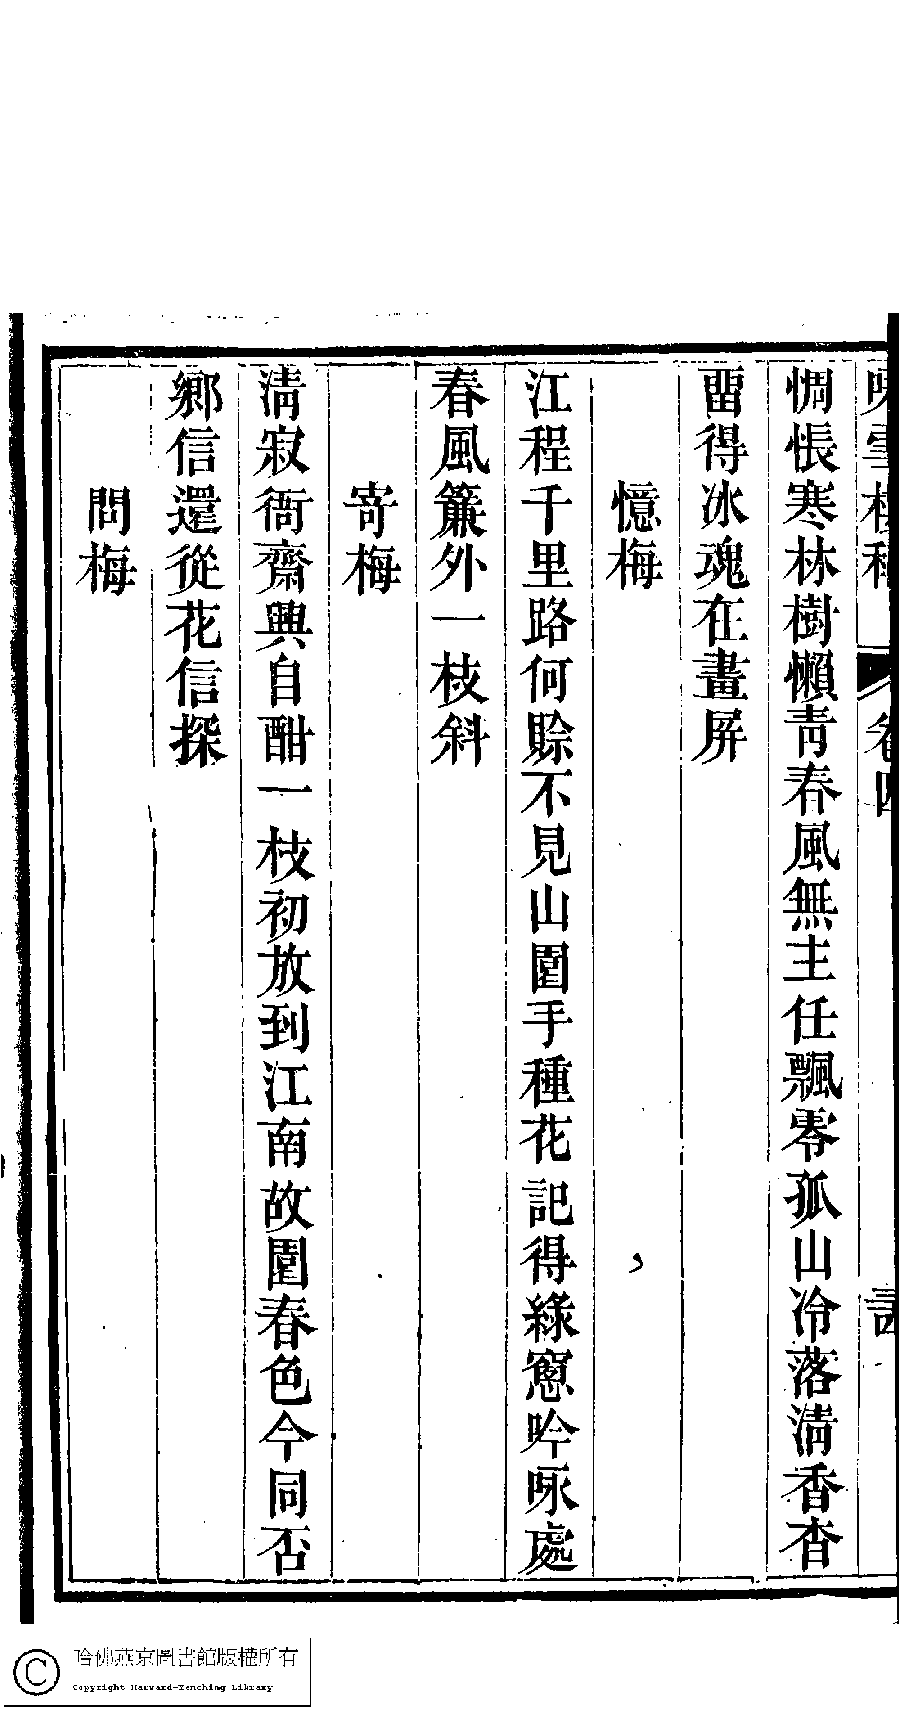 詠雪樓稿 卷四 詩
惆悵寒林樹懶靑春風無主任飄零孤山冷落淸香杳
畱得冰魂在畫屏
憶梅
江程千里路何賒不見山園手種花記得綠窻吟咏處
春風簾外一枝斜
寄梅
淸寂衙齋興自酣一枝初放到江南故園春色今同否
鄉信還從花信探
問梅
哈佛燕京圖書館版權所有
Copyright Harvard-Yenching Library